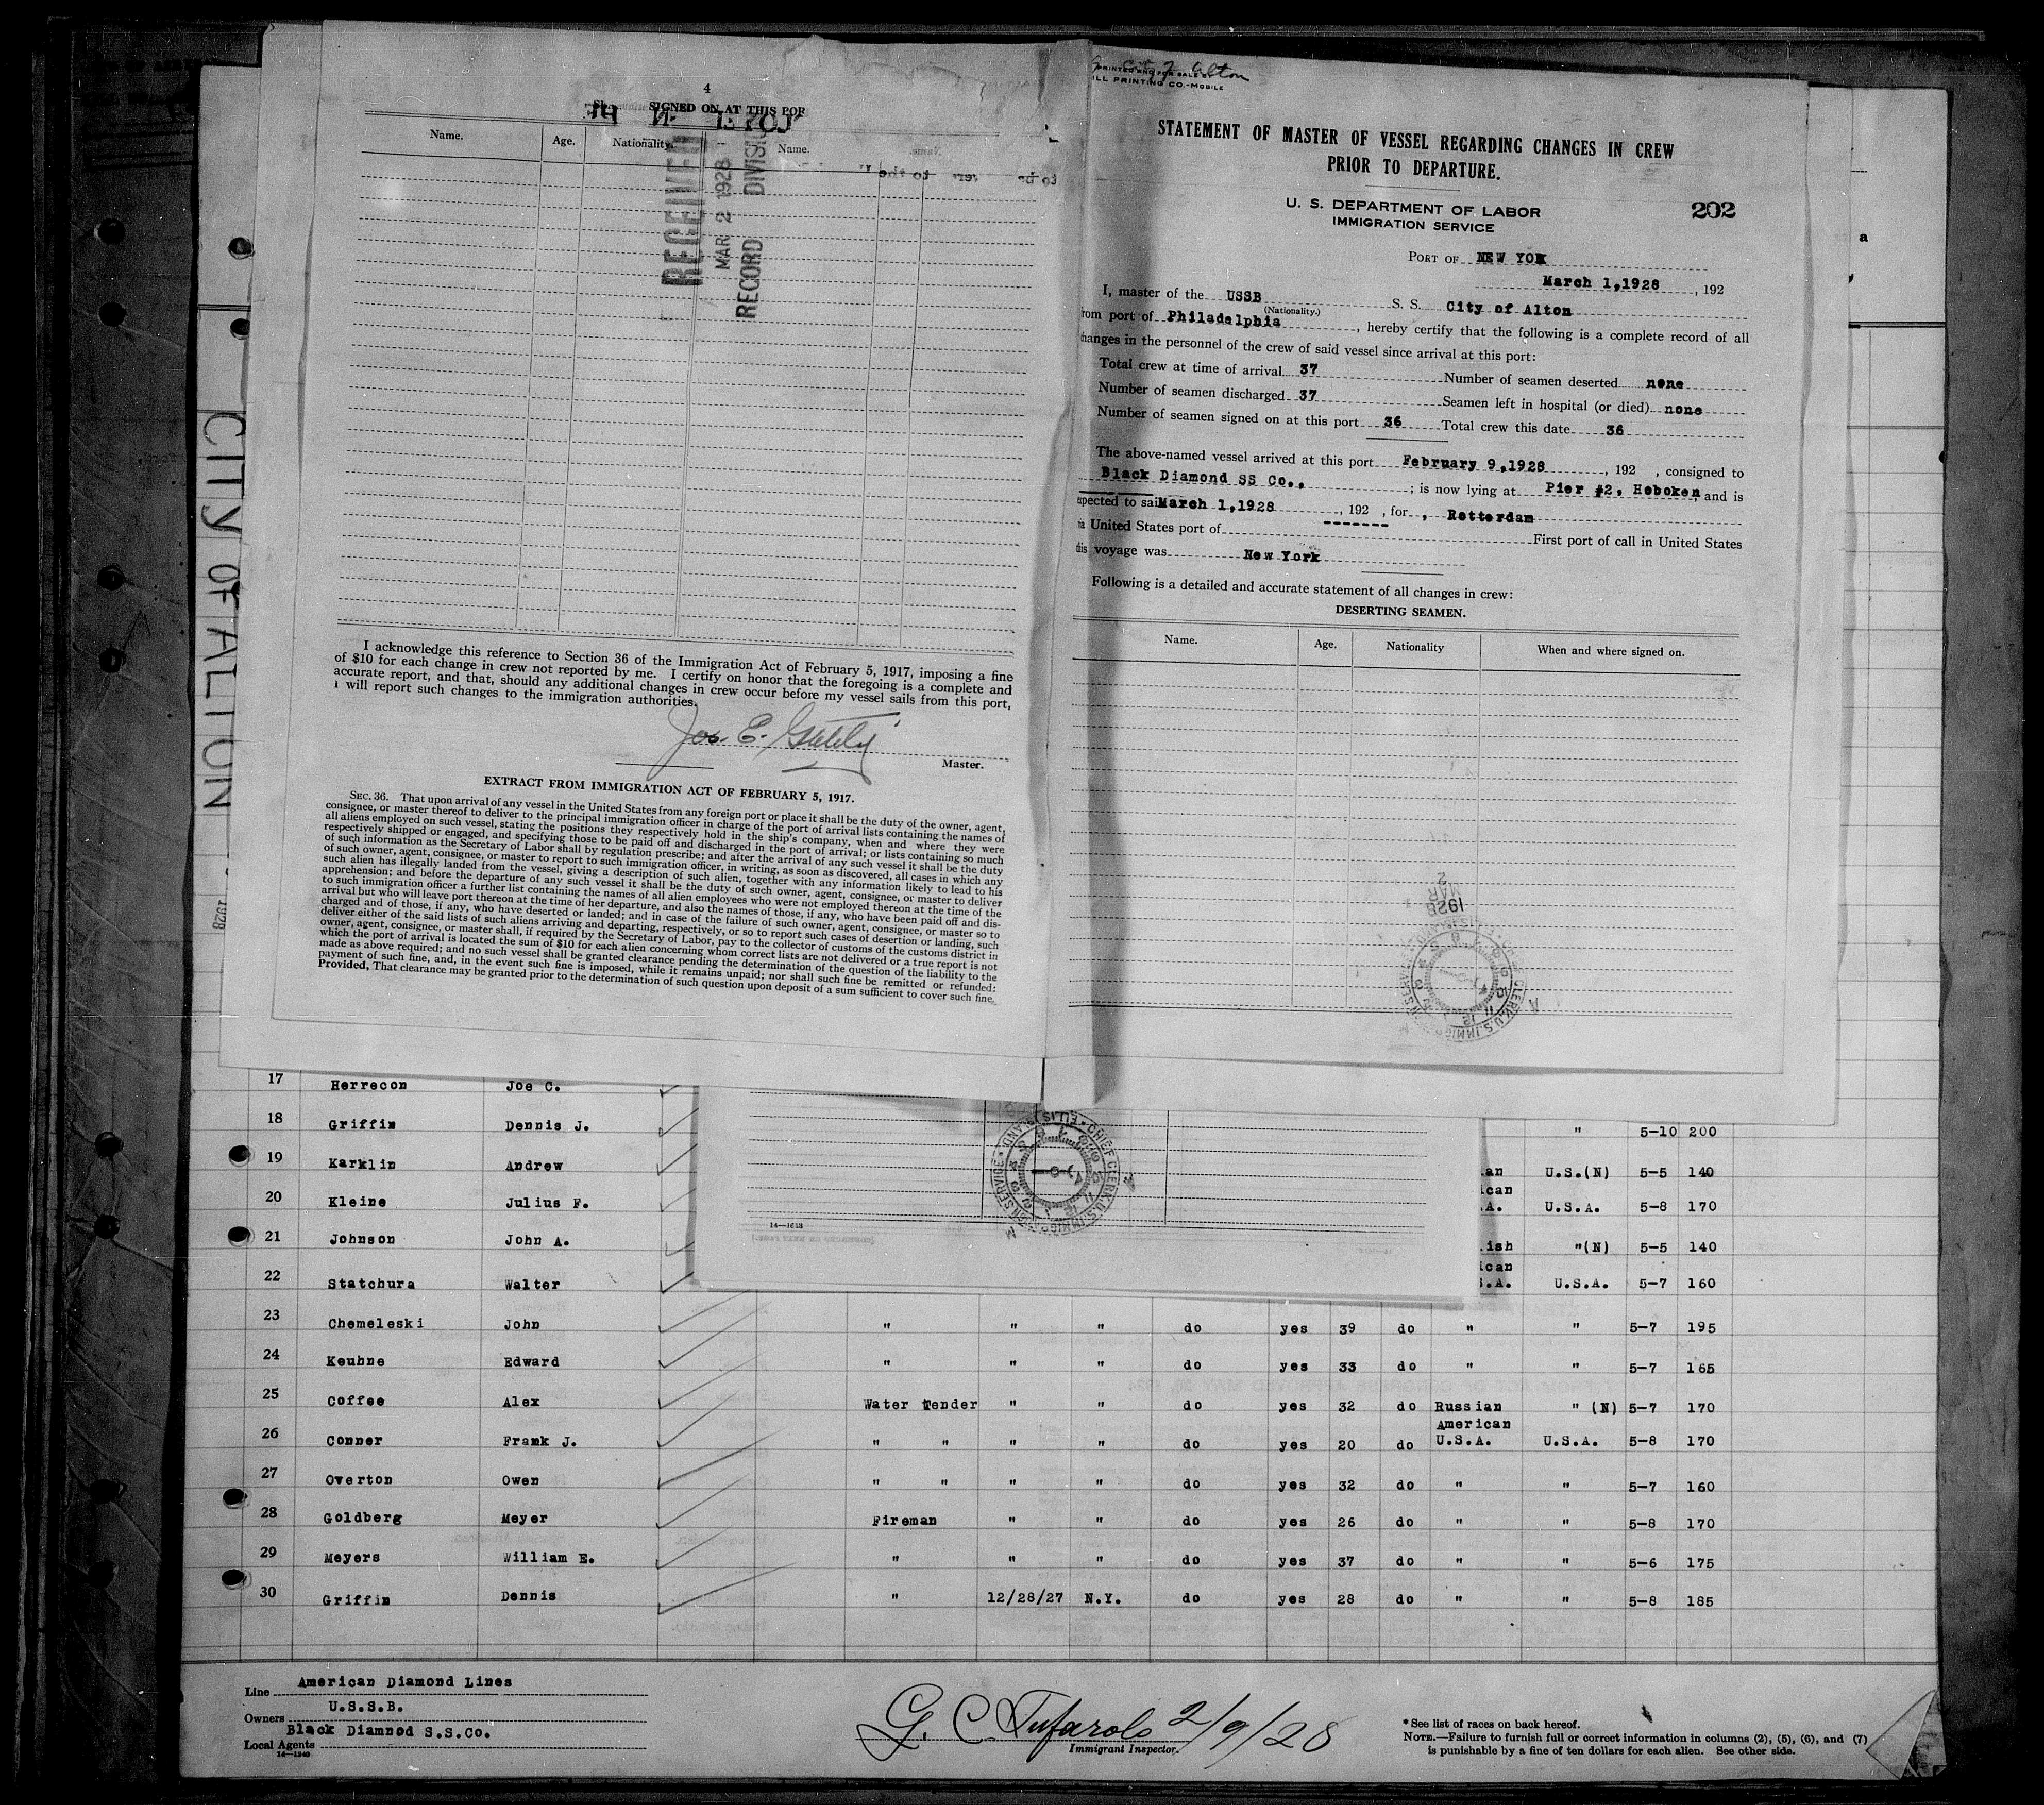 4
SIGNED ON AT THIS POR
Name. Age. Nationality. Name.
RECEIVED
MAR 2 1928
RECORD DIVISI
I acknowledge this reference to Section 36 of the Immigration Act of February 5, 1917, imposing a fine
of $10 for each change in crew not reported by me. I certify on honor that the foregoing is a complete and
accurate report, and that, should any additional changes in crew occur before my vessel sails from this port,
I will report such changes to the immigration authorities.
Jos. E. Gately
Master.
EXTRACT FROM IMMIGRATION ACT OF FEBRUARY 5, 1917.
SEC. 36. That upon arrival of any vessel in the United States from any foreign port or place it shall be the duty of the owner, agent,
consignee, or master thereof to deliver to the principal immigration officer in charge of the port of arrival lists containing the names of
all aliens employed on such vessel, stating the positions they respectively hold in the ship's company, when and where they were
respectively shipped or engaged, and specifying those to be paid off and discharged in the port of arrival; or lists containing so much
of such information as the Secretary of Labor shall by regulation prescribe; and after the arrival of any such vessel it shall be the duty
of such owner, agent, consignee, or master to report to such immigration officer, in writing, as soon as discovered, all cases in which any
such alien has illegally landed from the vessel, giving a description of such alien, together with any information likely to lead to his
apprehension; and before the departure of any such vessel it shall be the duty of such owner, agent, consignee, or master to deliver
to such immigration officer a further list containing the names of all alien employees who were not employed thereon at the time of the
arrival but who will leave port thereon at the time of her departure, and also the names of those, if any, who have been paid off and dis-
charged and of those, if any, who have deserted or landed; and in case of the failure of such owner, agent, consignee, or master so to
deliver either of the said lists of such aliens arriving and departing, respectively, or so to report such cases of desertion or landing, such
owner, agent, consignee, or master shall, if required by the Secretary of Labor, pay to the collector of customs of the customs district in
which the port of arrival is located the sum of $10 for each alien concerning whom correct lists are not delivered or a true report is not
made as above required; and no such vessel shall be granted clearance pending the determination of the question of the liability to the
payment of such fine, and, in the event such fine is imposed, while it remains unpaid; nor shall such fine be remitted or refunded:
Provided, That clearance may be granted prior to the determination of such question upon deposit of a sum sufficient to cover such fine.
City of Alton
PRINTED AND FOR SALE
ILL PRINTING CO.-MOBILE
STATEMENT OF MASTER OF VESSEL REGARDING CHANGES IN CREW
PRIOR TO DEPARTURE.
U. S. DEPARTMENT OF LABOR
IMMIGRATION SERVICE
202
PORT OF NEW YOK
March 1,1928, 192
I, master of the USSB S. S. City of Alton
(Nationality.)
rom port of Philadelphia, hereby certify that the following is a complete record of all
hanges in the personnel of the crew of said vessel since arrival at this port:
Total crew at time of arrival 37 Number of seamen deserted none
Number of seamen discharged 37 Seamen left in hospital (or died) none
Number of seamen signed on at this port 36 Total crew this date 36
The above-named vessel arrived at this port February 9,1928, 192 , consigned to
Black Diamond SS Co., ; is now lying at Pier #2, Hoboken, and is
xpected to sail March 1,1928, 192 , for , Rotterdam
ia United States port of First port of call in United States
this voyage was New York
Following is a detailed and accurate statement of all changes in crew:
DESERTING SEAMEN.
Name. Age. Nationality When and where signed on.
MAR 2 1928
CHIEF CLERK, U.S. IMMIGRATION SERVICE ELLIS ISLAND
a
CITY OF ALTON
1928
17 Herrecon Joe C.
18 Griffin Dennis J. " 5-10 200
19 Karklin Andrew an U.S.(N) 5-5 140
20 Kleine Julius F. ican .A. U.S.A. 5-8 170
21 Johnson John A. ish "(N) 5-5 140
22 Statchura Walter ican S.A. U.S.A. 5-7 160
23 Chemeleski John " " " do yes 39 do " " 5-7 195
24 Keuhne Edward " " " do yes 33 do " " 5-7 165
25 Coffee Alex Water Tender " " do yes 32 do Russian " (N) 5-7 170
26 Conner Frank J. " " " " do yes 20 do American U.S.A. U.S.A. 5-8 170
27 Overton Owen " " " " do yes 32 do " " 5-7 160
28 Goldberg Meyer Fireman " " do yes 26 do " " 5-8 170
29 Meyers William E. " " " do yes 37 do " " 5-6 175
30 Griffin Dennis " 12/28/27 N.Y. do yes 28 do " " 5-8 185
14—1618
CHIEF CLERK, U.S. IMMIGRATION SERVICE ELLIS ISLAND
Line American Diamond Lines
Owners U.S.S.B.
Local Agents Black Diamnod S.S.Co.
14—1240
G. C. Tufarolo 2/9/28
Immigrant Inspector.
* See list of races on back hereof.
NOTE.—Failure to furnish full or correct information in columns (2), (5), (6), and (7)
is punishable by a fine of ten dollars for each alien. See other side.